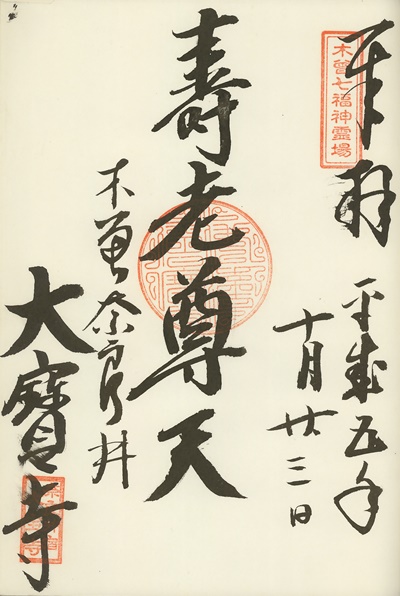 木曽七福神霊場
奉拝
平成五年
十月廿三日
壽老尊天
木曽奈良井
大寶寺